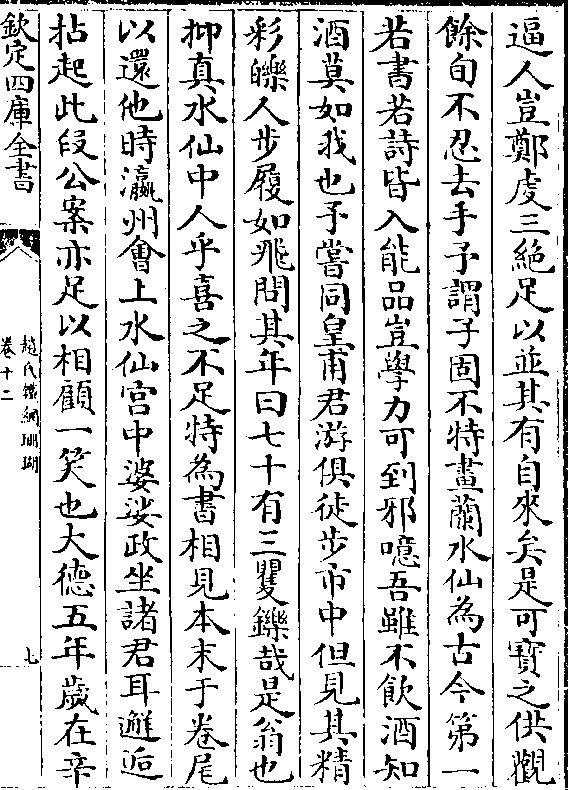 逼人豈鄭虔三絶足以並其有自來矣是可寶之供觀
餘旬不忍去手予謂子固不特畫蘭水仙為古今第一
若書若詩皆入能品豈學力可到邪噫吾雖不飲酒知
酒莫如我也予嘗同皇甫君游俱徒步市中但見其精
彩皪人步履如飛問其年曰七十有三矍鑠哉是翁也
抑真水仙中人乎喜之不足特為書相見本末于卷尾
以還他時瀛州會上水仙宫中婆娑政坐諸君耳邂逅
拈起此段公案亦足以相顧一笑也大德五年歲在辛
欽定四庫全書
趙氏鐵網珊瑚
卷十二
七